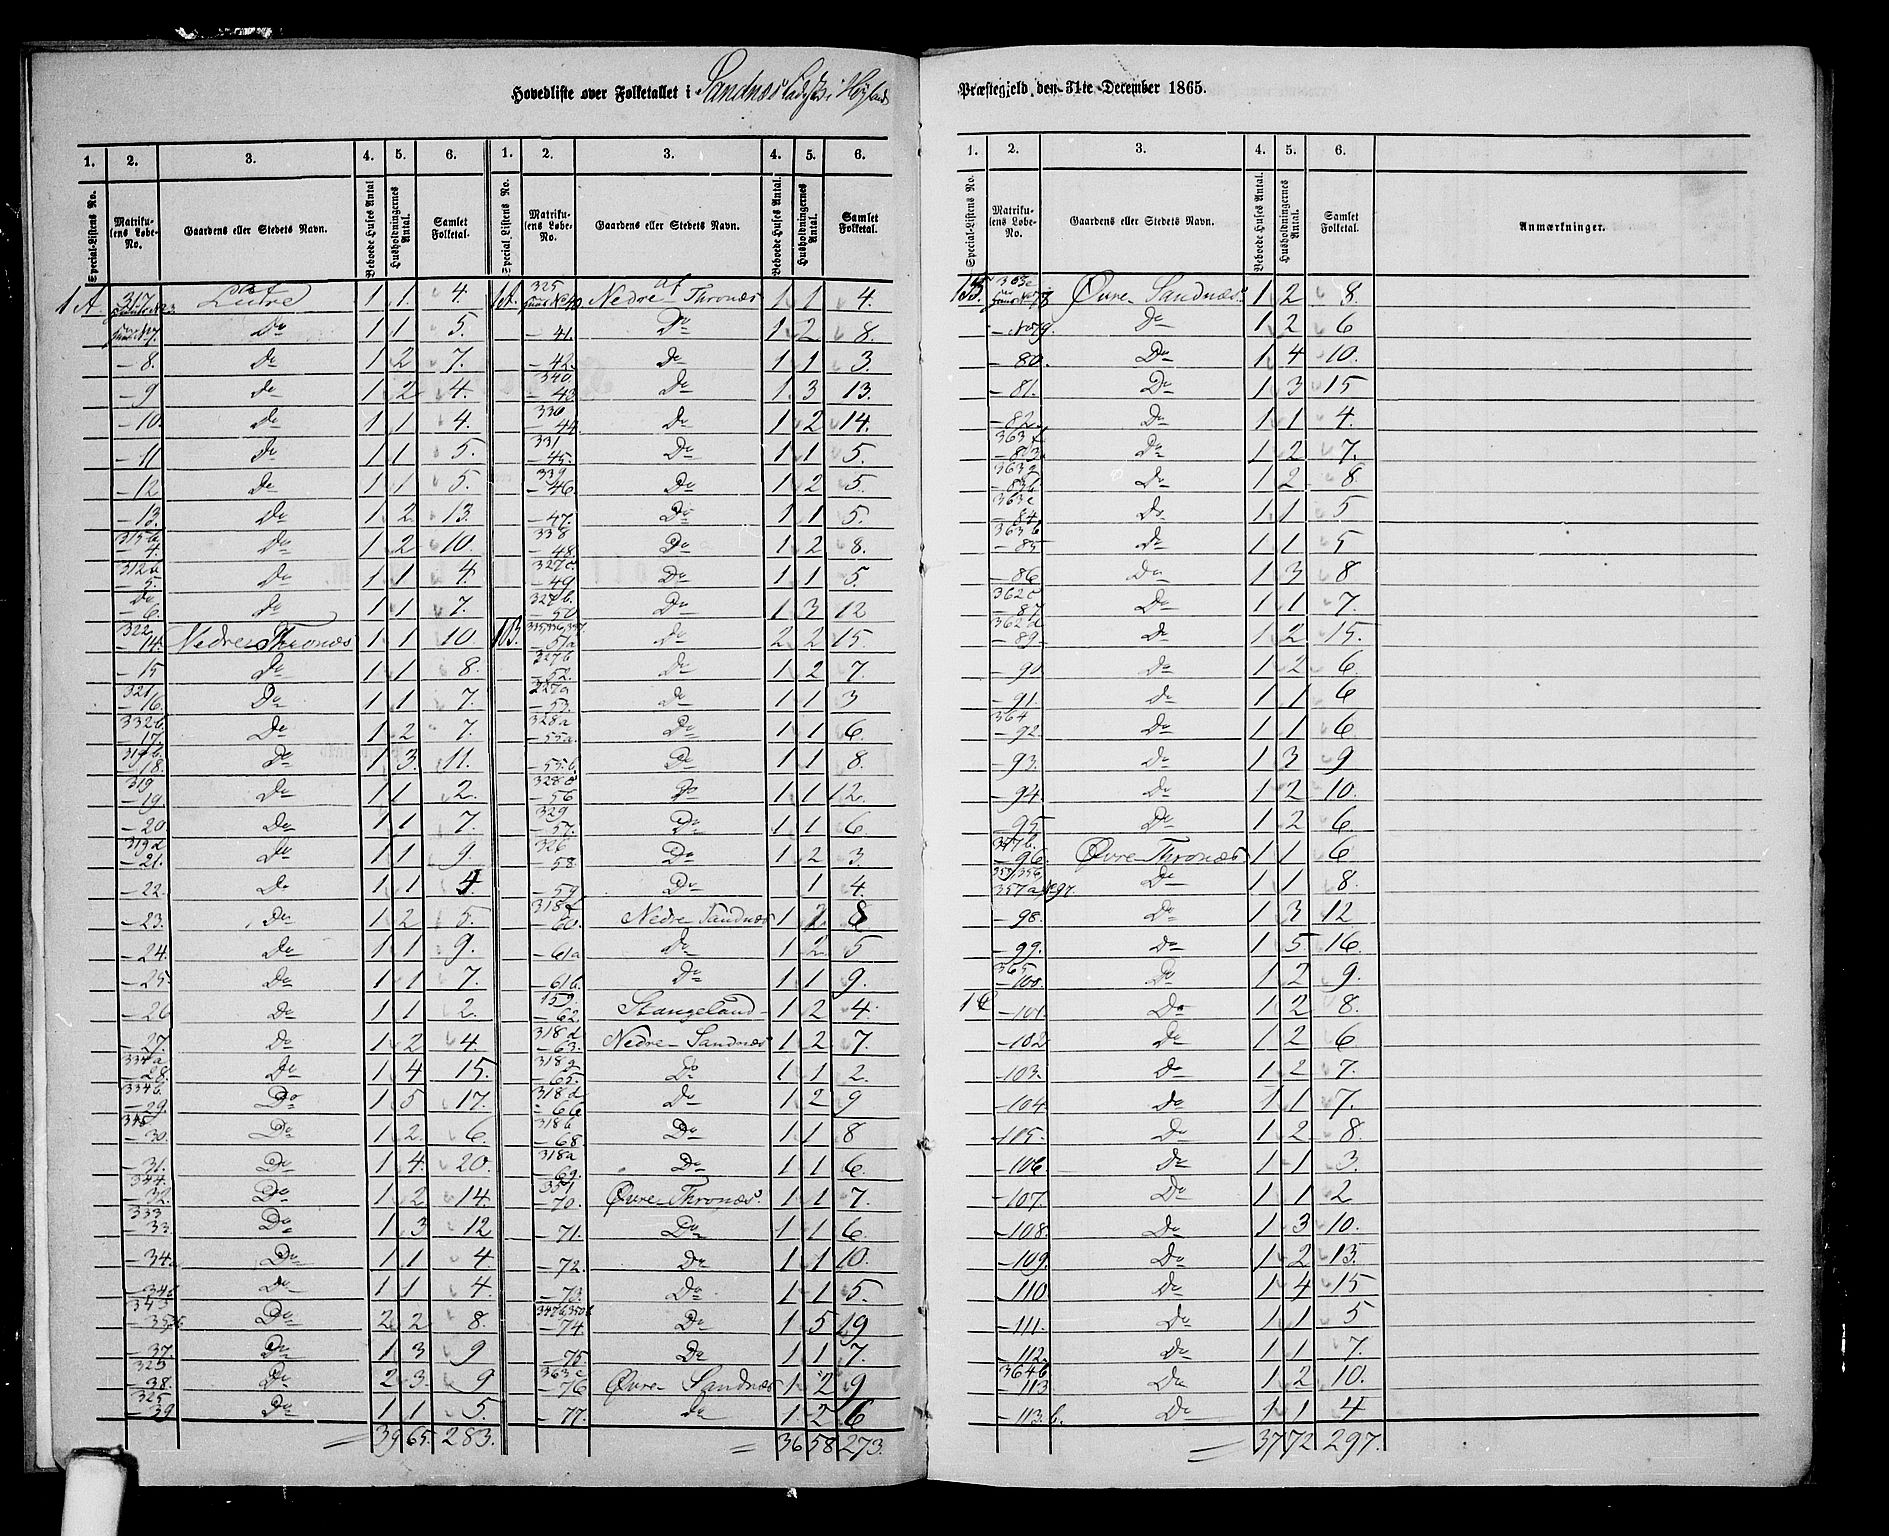 Hovedliste over Folketallet i Sandnæs Ladested i Høiland Præstegjeld, den 31te December 1865.
1. 2. 3. 4. 5. 6.
Special-Listens No. Matrikulens Løbe-No. Gaardens eller Stedets Navn. Beboede Huses Antal Husholdningernes Antal. Samlet Folketal.
1A. 317 No 3 af Lutre 1 1 4.
No 7. Do 1 1 5.
-8. Do 1 2 7.
-9 Do 1 2 4.
-10 Do 1 1 4.
-11 Do 1 1 5.
-12 Do 1 1 5.
-13. Do 1 2 13.
315b -4. Do 1 2 10.
312a -5. Do 1 1 4.
Do -6. Do 1 1 7.
322 -14. Nedre Thronæs 1 1 10.
-15 Do 1 1 8.
321 -16. Do 1 1 7.
332b 17. Do 1 2 7.
319b -18. Do 1 3 11.
319 -19. Do 1 1 2.
-20. Do 1 1 7.
319d -21. Do 1 1 9.
-22. Do 1 1 4
-23. Do 1 2 5.
-24. Do 1 1 9.
-25. Do 1 1 7.
-26 Do 1 1 2.
-27. Do 1 2 4.
334a -28. Do 1 4 15.
334b -29. Do 1 5 17.
-30. Do 1 2 6.
-31. Do 1 4 20.
344. -32. Do 1 2 14.
333 -33. Do 1 3 12
-34. Do 1 1 4
-34b Do 1 1 4
343 -35 Do 2 2 8.
-37. Do 1 3 9
323 -38. Do 2 3 9
325 -39 Do 1 1 5.
= 39 65. 283.
1. 2. 3. 4. 5. 6.
Special Listens No. Matrikulens Løbe-No. Gaardens eller Stedets Navn. Beboede Huses Antal. Husholdningernes Antal. Samlet Folketal.
1A. 325 Huus No 40 af Nedre Thronæs 1 1 4.
-41. Do 1 2 8.
-42. Do 1 1 3.
340. -43 Do 1 3 13.
330 -44. Do 1 2 14.
331 -45. Do 1 1 5.
339 -46. Do 1 2 5.
-47. Do 1 1 5.
338 -48. Do 1 2 8.
327c. -49 Do 1 1 5.
327b. -50 Do 1 3 12
1B. -51a Do 2 2 15.
327b -52. Do 1 2 7.
327a -53. Do 1 1 3
328a -55a. Do 1 1 6.
-55.b. Do 1 1 8.
328c -56 Do 1 1 12.
329 -57. Do 1 1 6.
326 -58. Do 1 2 3.
-59. Do 1 4.
318f -60. Nedre Sandnæs 1 2 8
-61a Do 1 2 5
-61b. Do 1 1 9.
159. -62 Stangeland 1 2 4.
318d -63. Nedre Sandnæs 1 2 7.
318g -65. Do 1 1 2.
318d -66 Do 1 2 9
318b -68 Do 1 1 8
318a -69. Do 1 1 6.
351 -70. Øvre Thronæs. 1 1 7.
-71. Do 1 1 6.
-72. Do 1 1 10.
-73. Do 1 1 5.
347b,350b -74. Do 1 5 19
-75. Do 1 1 7.
363c -76 Øvre Sandnæs 1 2 9
-77. Do 1 2 6
= 36 58 273.
1. 2. 3. 4. 5. 6.
Special-Listens No. Matrikulens Løbe-No. Gaardens eller Stedets Navn. Beboede Huses Antal. Husholdningernes Antal. Samlet Folketal. Anmærkninger.
1B 363c Huus No 78 Øvre Sandnæs. 1 2 8.
-No 79. Do 1 2 6
-80. Do 1 4 10.
-81. Do 1 3 15
-82. Do 1 1 4.
363f -83. Do 1 2 7.
363a -83b. Do 1 2 8.
363c -84. Do 1 1 5
363b -85 Do 1 1 5
-86 Do 1 3 8
362c -87. Do 1 1 7.
362d -89. Do 1 2 15.
-90 Do 1 2 6.
-91. Do 1 1 6
364 -92. Do 1 1 6
-93. Do 1 3 9
-94. Do 1 2 10.
-95 Do 1 2 6
347b. -96. Øvre Thronæs 1 1 6
357,356, 357a No 97. Do 1 1 8.
-98. Do 1 3 12
-99. Do 1 5 16.
365 -100. Do 1 2 9.
1C -101. Do 1 2 8.
-102 Do 1 2 6
-103. Do 1 2 7.
-104. Do 1 1 7.
-105. Do 1 2 8.
-106 Do 1 1 3.
-107. Do 1 1 2
-108. Do 1 3 10.
-109. Do 1 2 13.
-110 Do 1 4 15
-111. Do 1 1 5
-112. Do 1 1 7.
364b -113 Do 1 2 10.
-113.b. Do 1 1 4
= 37 72 297.